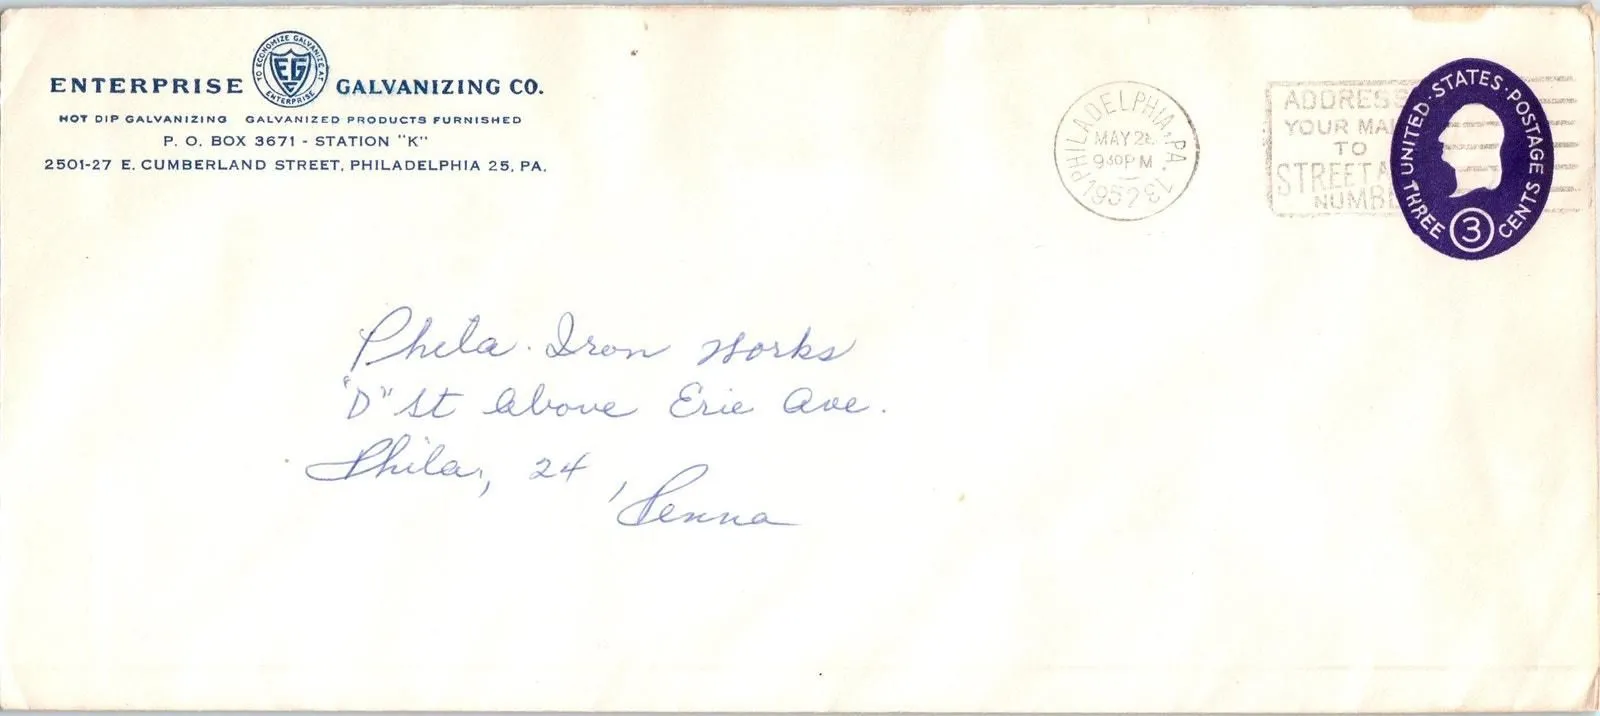 TO ECONOMIZE GALVANIZE AT ENTERPRISE
EG
ENTERPRISE GALVANIZING CO.
HOT DIP GALVANIZING GALVANIZED PRODUCTS FURNISHED
P. O. BOX 3671 - STATION "K"
2501-27 E. CUMBERLAND STREET, PHILADELPHIA 25, PA.
PHILADELPHIA, PA.
MAY
930PM
1952
ADDRESS
YOUR
TO
STREET
UNITED·STATES·POSTAGE
THREE 3 CENTS
Phila. Iron Works
"D" St above Erie Ave.
Phila, 24, Penna